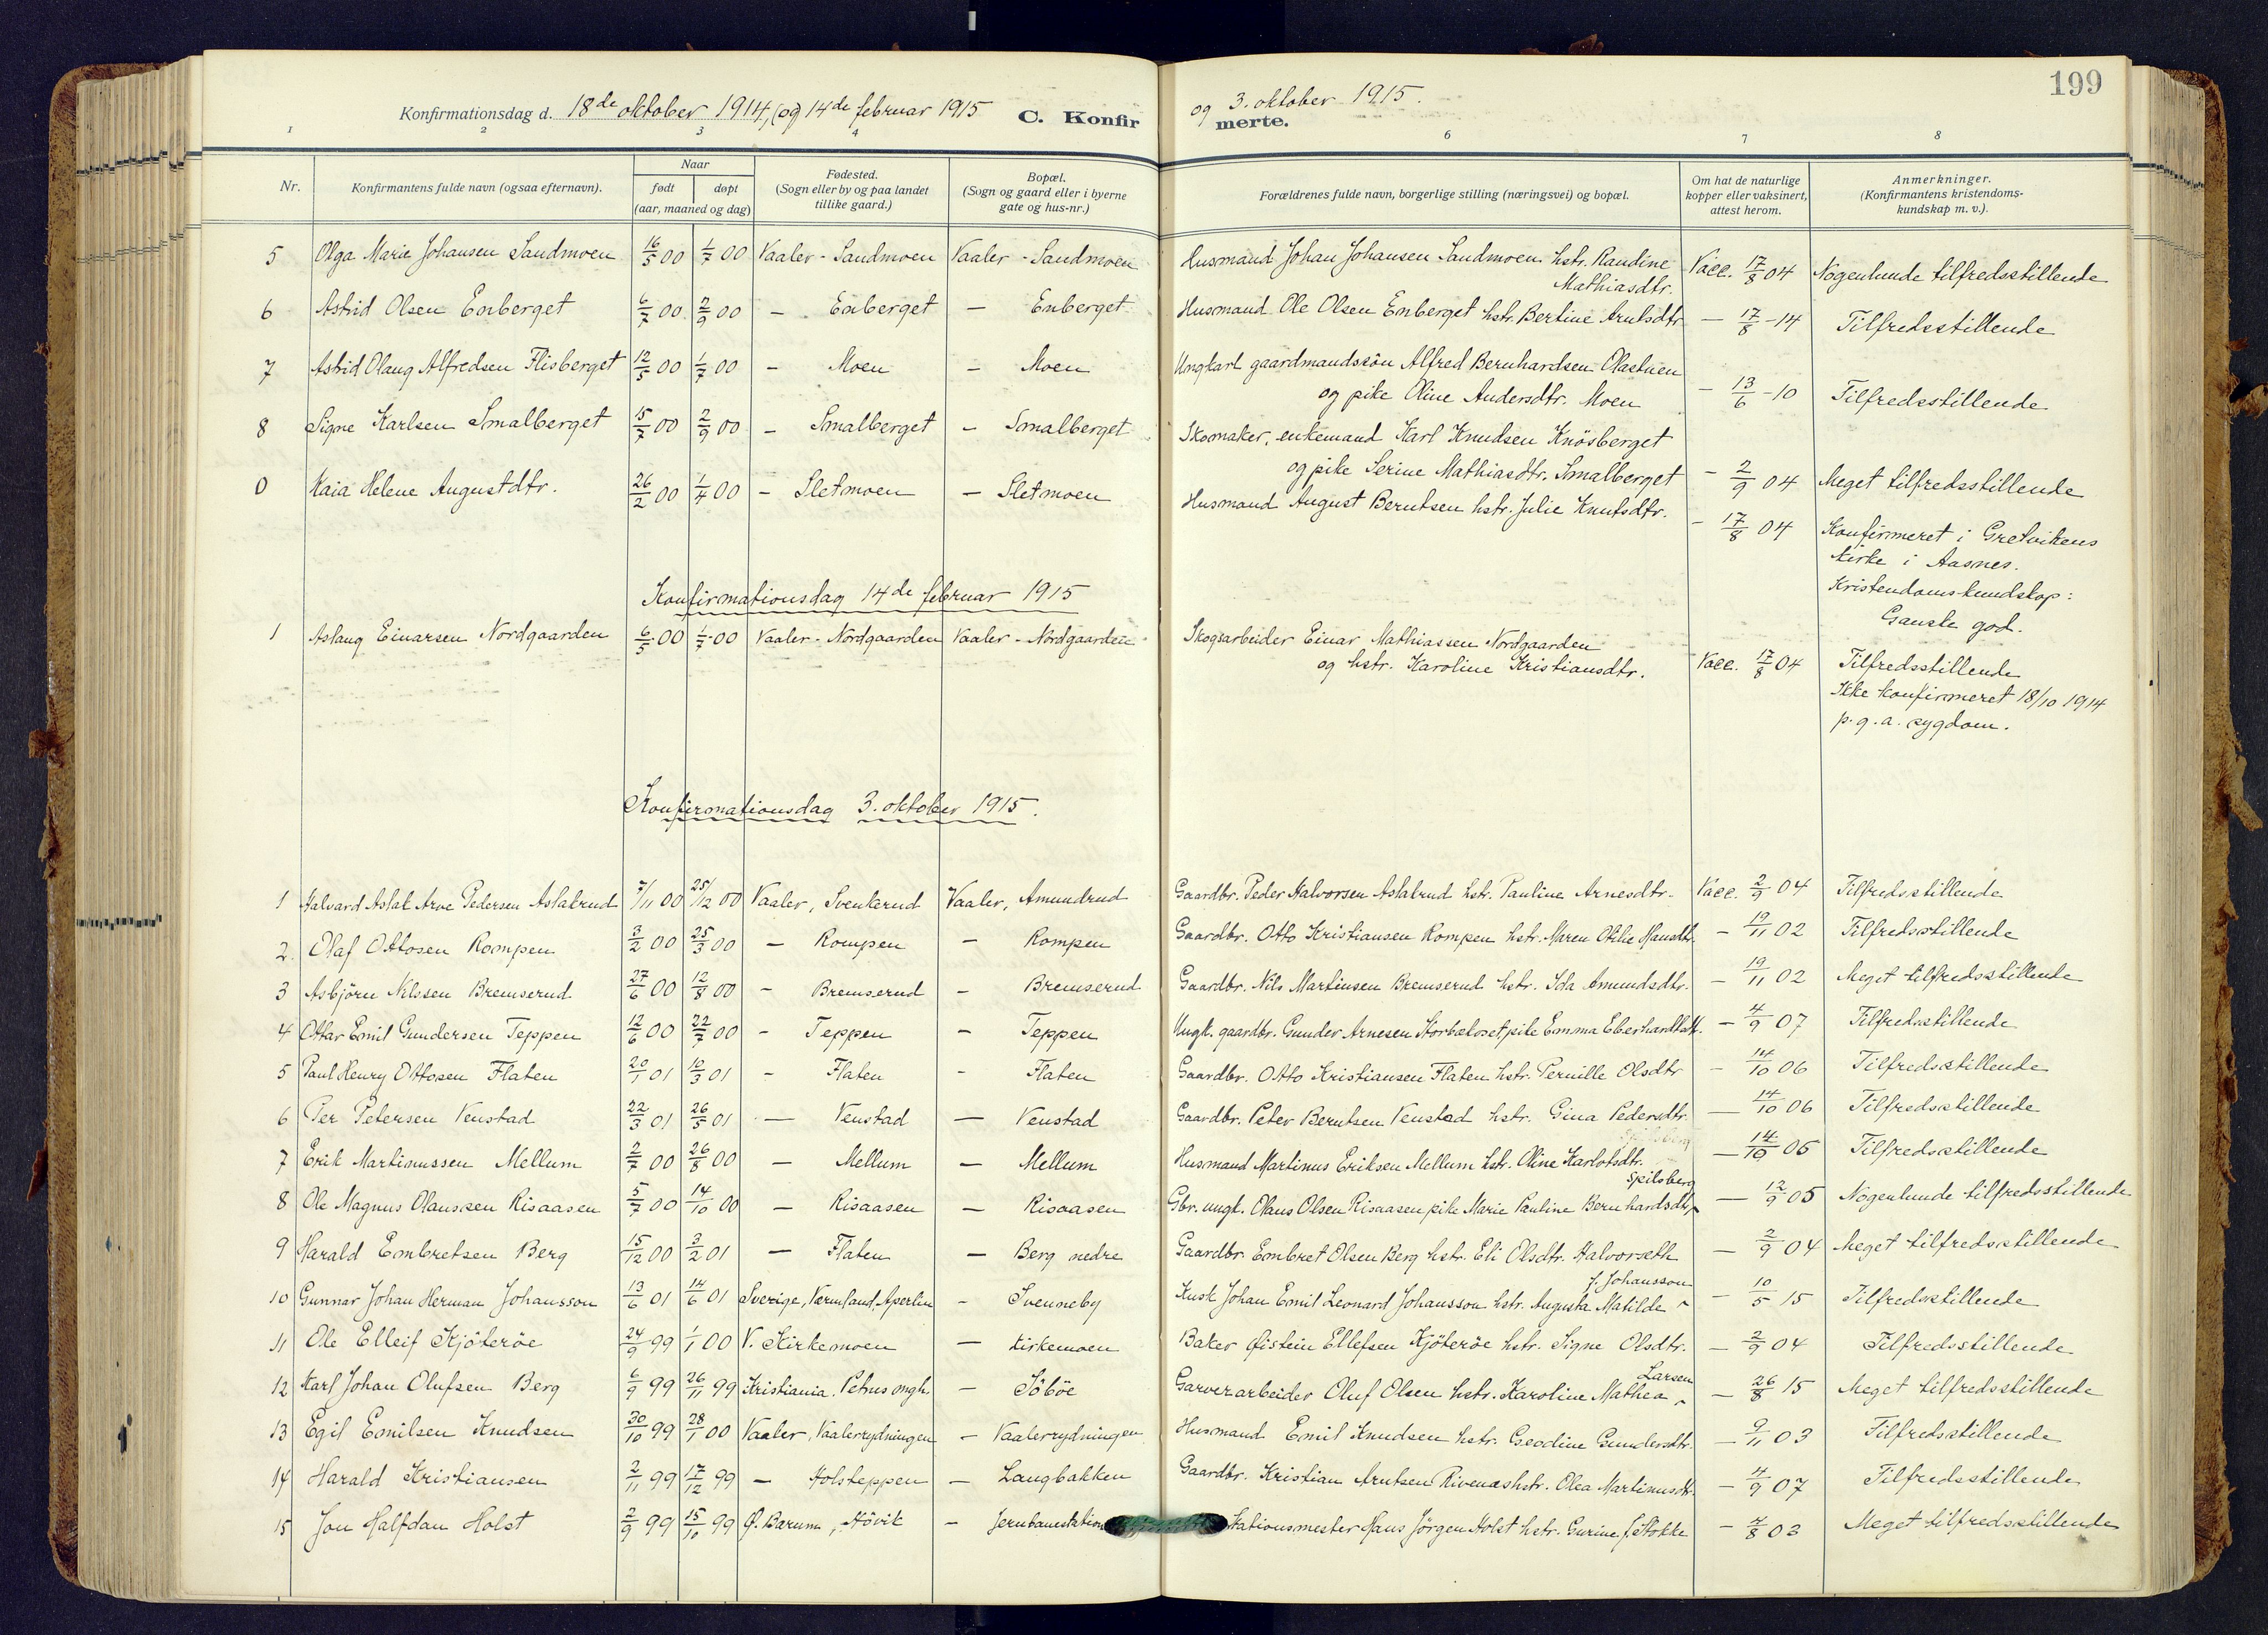 199
Konfirmationsdag d. 18de oktober 1914, (og 14de februar 1915 C. Konfir og 3. oktober 1915. merte.
1 2 3 4 6 7 8
Nr. Konfirmantens fulde navn (ogsaa efternavn). Naar født døpt (aar, maaned og dag) Fødested. (Sogn eller by og paa landet tillike gaard.) Bopæl. (Sogn og gaard eller i byerne gate og hus-nr.) Forældrenes fulde navn, borgerlige stilling (næringsvei) og bopæl. Om hat de naturlige kopper eller vaksinert, attest herom. Anmerkninger. (Konfirmantens kristendoms-kundskap m. v.).
5 Olga Marie Johansen Sandmoen 16/5 00 1/7 00 Vaaler - Sandmoen Vaaler - Sandmoen Husmand Johan Johansen Sandmoen hstr. Randine Vacc. 17/8 04 Nogenlunde tilfredsstillende
Mathiasdtr.
6 Astrid Olsen Enberget 6/7 00 2/9 00 - Enberget - Enberget Husmand Ole Olsen Enberget hstr. Bertine Arntsdtr - 17/8 - 14 Tilfredsstillende
7 Astrid Olaug Alfredsen Flisberget 12/5 00 1/7 00 - Moen - Moen Ungkarl gaardmandssön Alfred Bernhardsen Olastuen
og pike Oline Andersdtr. Moen - 13/6 - 10 Tilfredsstillende
8 Signe Karlsen Smalberget 15/7 00 2/9 00 - Smalberget - Smalberget Skomaker, enkemand Karl Knudsen Knösberget
og pike Serine Mathiasdtr. Smalberget - 2/9 04 Meget tilfredsstillende
0 Kaia Helene Augustdtr. 26/2 00 1/4 00 - Sletmoen - Sletmoen Husmand August Berntsen hstr. Julie Knutsdtr. - 17/8 04 Konfirmeret i Gretvikens
kirke i Aasnes.
Kristendomskundskap:
Ganske god.
Konfirmationsdag 14de februar 1915
1 Aslaug Einarsen Nordgaarden 6/5 00 1/7 00 Vaaler - Nordgaarden Vaaler - Nordgaarden Skogsarbeider Einar Mathiassen Nordgaarden
og hstr. Karoline Kristiansdtr. Vacc. 17/8 04 Tilfredsstillende
Ikke konfirmeret 18/10 1914
p. g. a. sygdom.
Konfirmationsdag 3. oktober 1915.
1 Halvard Aslak Arve Pedersen Aslakrud 7/11 00 25/12 00 Vaaler, Svenkerud Vaaler, Amundrud Gaardbr. Peder Halvorsen Aslakrud hstr. Pauline Arnesdtr. Vacc. 2/9 04 Tilfredsstillende
2. Olaf Ottosen Rompen 3/2 00 25/3 00 - Rompen - Rompen Gaardbr. Otto Kristiansen Rompen hstr. Maren Otilie Hansdtr. - 19/11 02 Tilfredsstillende
3 Asbjörn Nilssen Bremserud 27/6 00 12/8 00 - Bremserud - Bremserud Gaardbr. Nils Martinsen Bremserud hstr. Ida Amundsdtr. - 19/11 02 Meget tilfredsstillende
4 Ottar Emil Gundersen Teppen 12/6 00 22/7 00 - Teppen - Teppen Ungk. gaardbr. Gunder Arnesen pike Emma Eberhardtsdtr. - 4/9 07 Tilfredsstillende
5 Paul Henry Ottosen Flaten 20/1 01 10/3 01 - Flaten - Flaten Gaardbr. Otto Kristiansen Flaten hstr. Pernille Olsdtr - 14/10 06 Tilfredsstillende
6 Per Petersen Venstad 22/3 01 26/5 01 - Venstad - Venstad Gaardbr. Peter Berntsen Venstad hstr. Gina Pedersdtr. - 14/10 06 Tilfredsstillende
7 Erik Martinussen Mellum 2/7 00 26/8 00 - Mellum - Mellum Husmand Martinus Eriksen Mellum hstr. Oline Karlotsdtr. - 14/10 05 Tilfredsstillende
Spilsberg
8 Ole Magnus Olaussen Risaasen 5/7 00 14/10 00 - Risaasen - Risaasen Gbr. ungk. Olaus Olsen Risaasen pike Marie Pauline Bernhardsdtr. - 12/9 05 Nogenlunde tilfredsstillende
9 Harald Embretsen Berg 15/12 00 3/2 01 - Flaten - Berg nedre Gaardbr. Embret Olsen Berg hstr. Eli Olsdtr. Halvorseth - 2/9 04 Meget tilfredsstillende
f. Johansson
10 Gunnar Johan Herman Johansson 13/6 01 14/6 01 Sverige, Værmland, - Svenneby Kusk Johan Emil Leonard Johansson hstr. Augusta Matilde - 10/5 15 Tilfredsstillende
11 Ole Elleif Kjöteröe 24/9 99 1/1 00 V. Kirkemoen - Kirkemoen Baker Øistein Ellefsen Kjöteröe hstr. Signe Olsdtr. - 2/9 04 Tilfredsstillende
Larsen
12 Karl Johan Olufsen Berg 6/9 99 26/11 99 Kristiania. Petrus mgh. - Söböe Garverarbeider Oluf Olsen hstr. Karoline Mathea - 26/8 15 Meget tilfredsstillende
13 Egil Emilsen Knudsen 30/10 99 28/1 00 Vaaler, Vaalerrydningen - Vaalerrydningen Husmand Emil Knudsen hstr. Geodine Gundersdtr. - 9/11 03 Tilfredsstillende
14 Harald Kristiansen 2/11 99 17/12 99 - Holsteppen - Langbakken Gaardbr. Kristian Arntsen Rivenæs hstr. Olea Martinusdtr. - 4/9 07 Tilfredsstillende
15 Jon Halfdan Holst 2/9 99 15/10 99 Ø. Bærum, Hövik - Jernbanestation Stationsmester Hans Jörgen Holst hstr. Gurine f. Stokke - 4/8 03 Meget tilfredsstillende